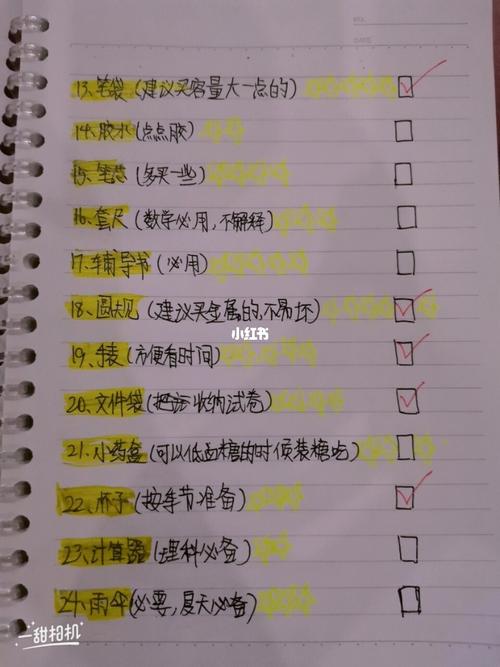 13、笔袋(建议买容量大一点的)
14、胶水(点点胶)
15、笔芯(多买一些)
16、套尺(数学必用,不解释)
17、辅导书(必用)
18、圆规(建议买金属的,不易坏)
小红书
19、手表(方便看时间)
20、文件袋(收纳试卷)
21、小药盒(可以低血糖的时候装糖吃)
22、杯子(按季节准备)
23、计算器(理科必备)
24、雨伞(必要,夏天必备)
甜相机